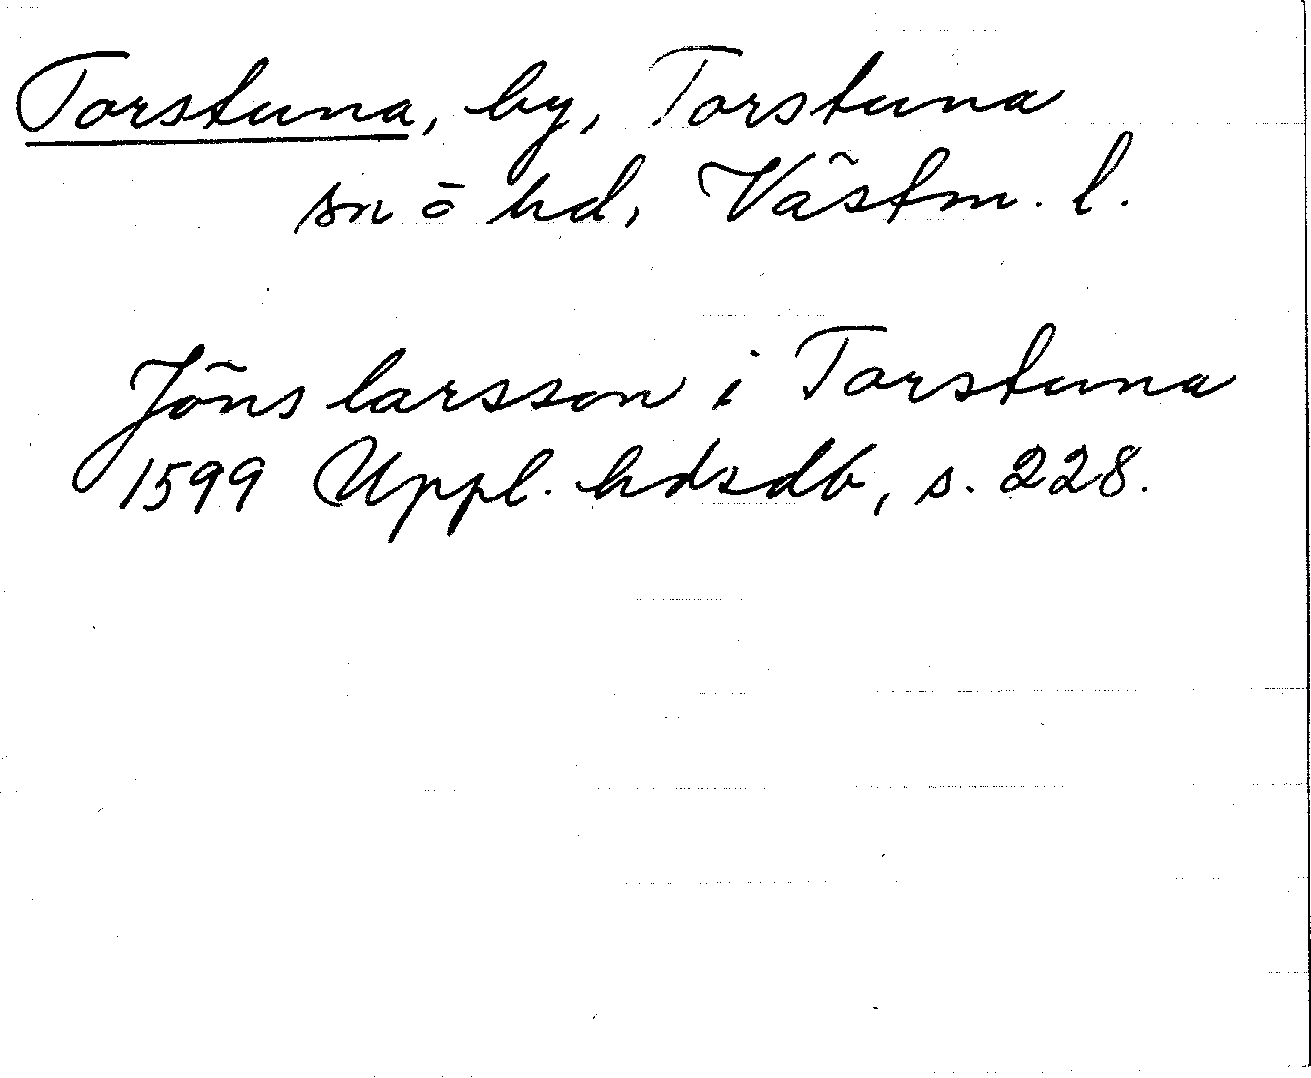 Torstuna, by, Torstuna
sn o hd, Västm. l.
Jöns larsson i Torstuna
1599 Uppl. hdsdb, s. 228.